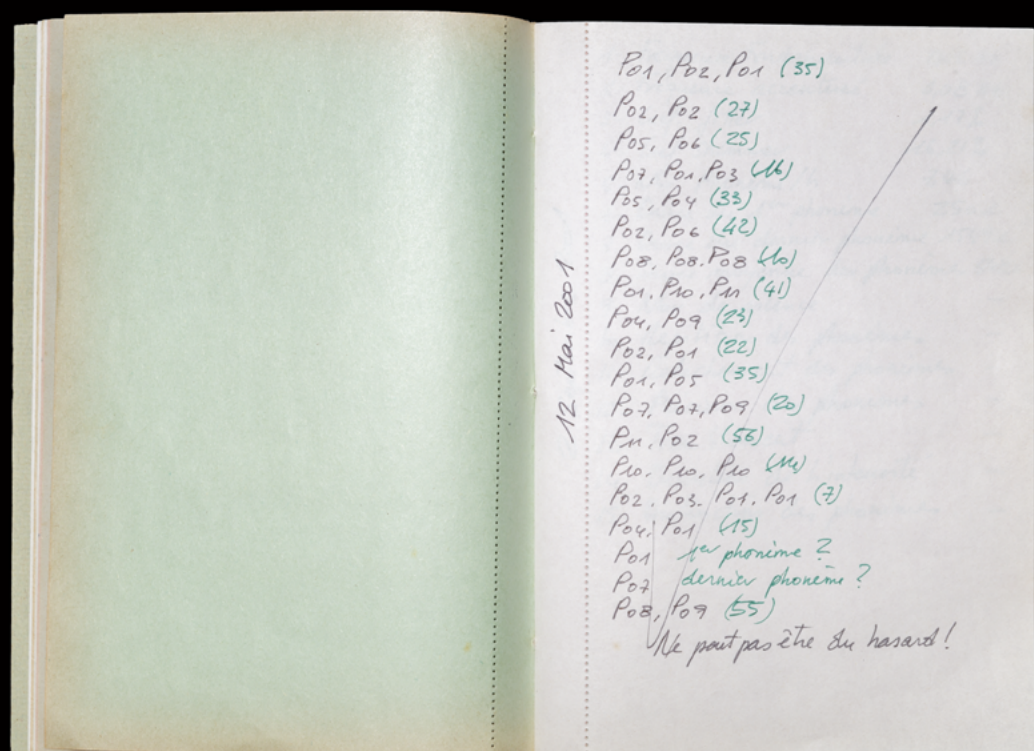 12 Mai 2001
P01, P02, P01 (35)
P02, P02 (27)
P05, P06 (25)
P07, P01, P03 (16)
P05, P04 (33)
P02, P06 (42)
P08, P08. P08 (10)
P01. P10, P11 (41)
P04, P09 (23)
P02, P01 (22)
P01, P05 (35)
P07, P07, P09 (20)
P11, P02 (56)
P10. P10, P10 (14)
P02. P03. P01. P01 (7)
P04, P01 (15)
P01 1er phonème ?
P07 dernier phonème ?
P08, P09 (55)
Ne peut pas être du hasard !